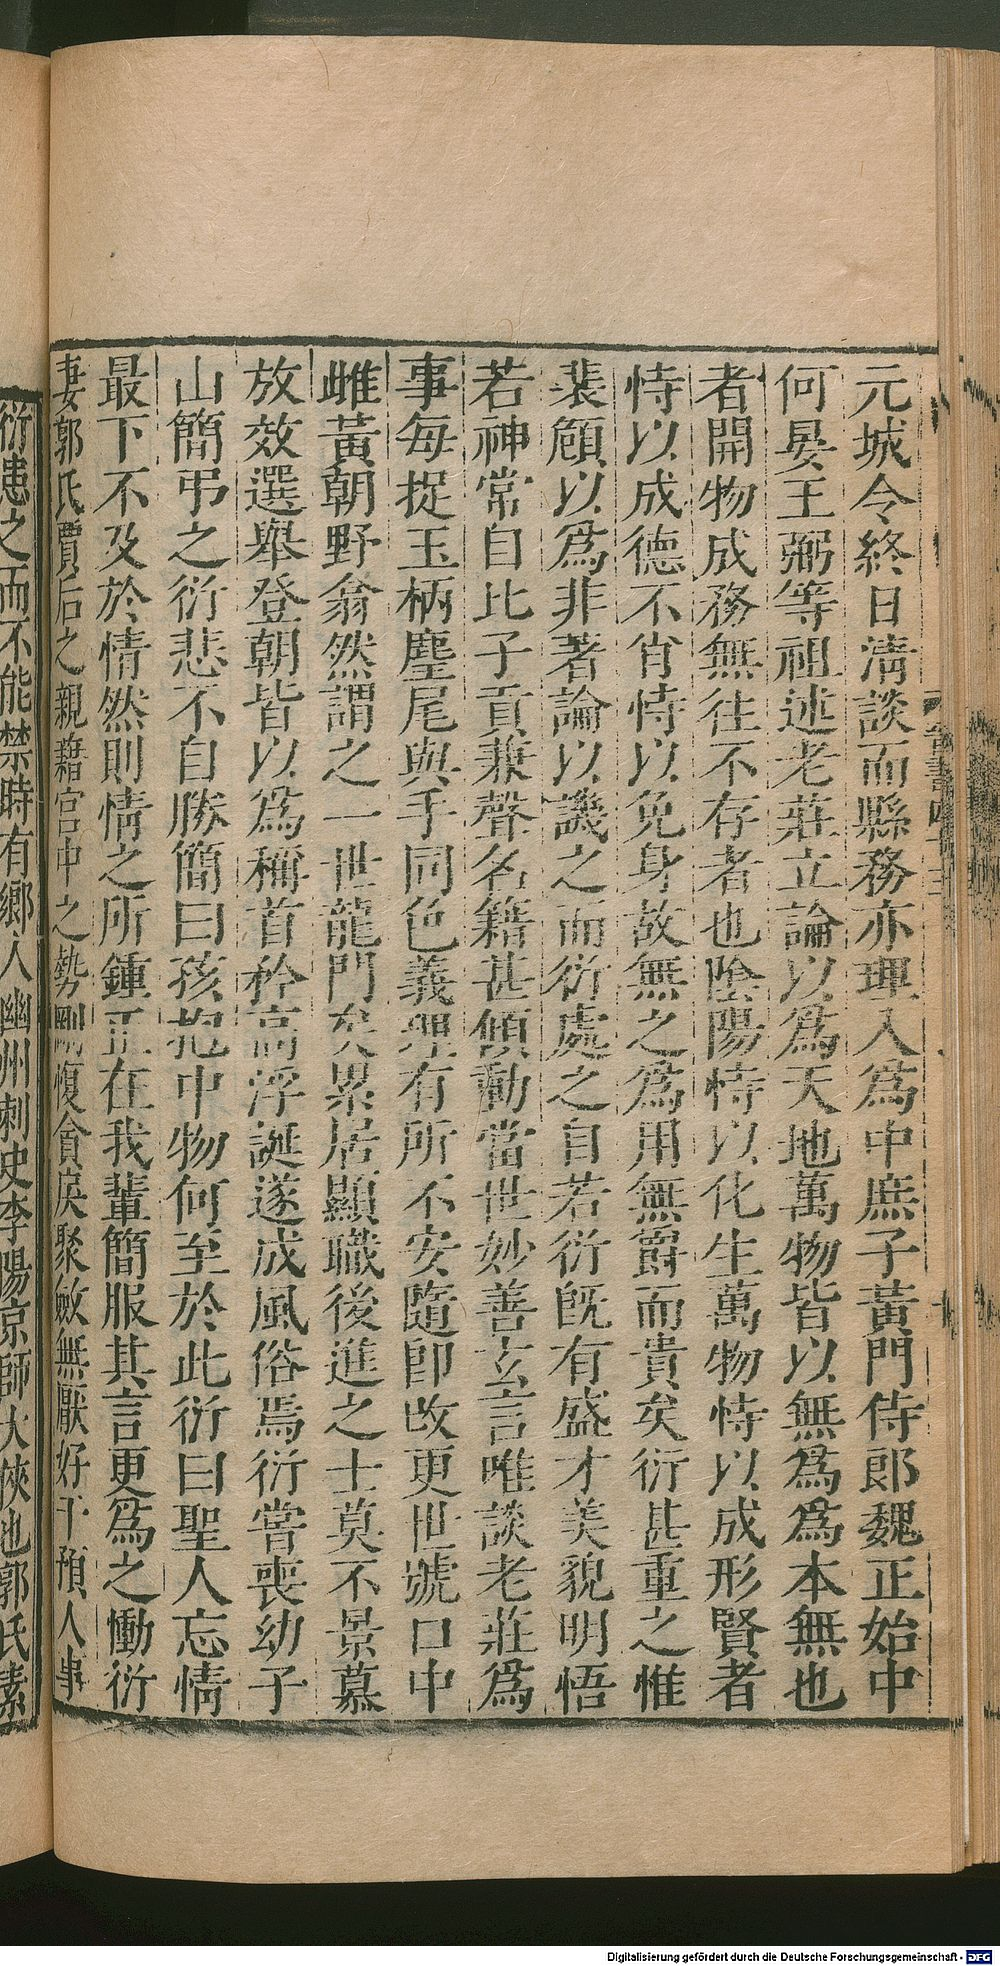 元城令終日淸談而縣務亦理入爲中庶子黃門侍郎魏正始中
何晏王弼等祖述老莊立論以爲天地萬物皆以無爲爲本無也
者開物成務無往不存者也陰陽恃以化生萬物恃以成形賢者
恃以成德不肖恃以免身故無之爲用無爵而貴矣衍甚重之惟
裴頠以爲非著論以譏之而衍處之自若衍旣有盛才美貌明悟
若神常自比子貢兼聲名籍甚傾動當世妙善玄言唯談老莊爲
事每捉玉柄麈尾與手同色義理有所不安隨卽改更世號口中
雌黃朝野翕然謂之一世龍門矣累居顯職後進之士莫不景慕
放效選舉登朝皆以爲稱首矜高浮誕遂成風俗焉衍嘗喪幼子
山簡弔之衍悲不自勝簡曰孩抱中物何至於此衍曰聖人忘情
最下不及於情然則情之所鍾正在我輩簡服其言更爲之慟衍
妻郭氏賈后之親藉宮中之勢剛愎貪戾聚斂無厭好干預人事
衍患之而不能禁時有鄉人幽州刺史李陽京師大俠也郭氏素
Digitalisierung gefördert durch die Deutsche Forschungsgemeinschaft - DFG